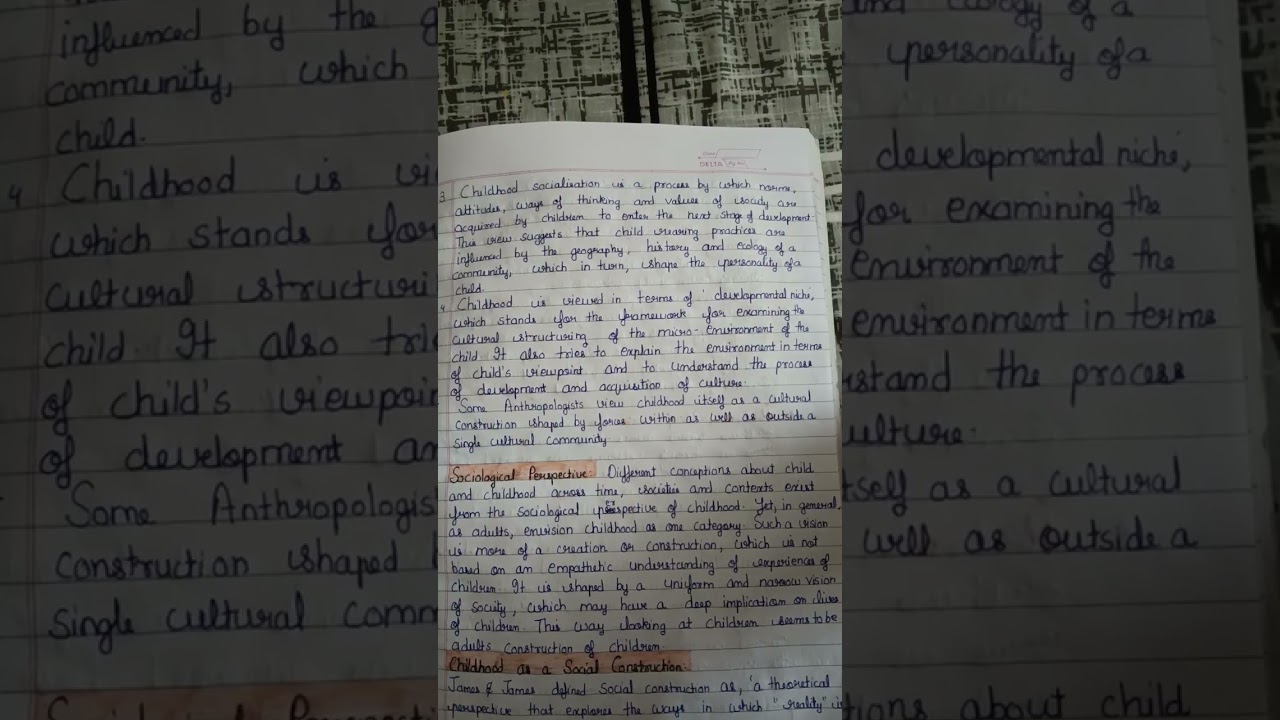 DELTA
3 Childhood socialisation is a process by which norms,
attitudes, ways of thinking and values of society are
acquired by children to enter the next stage of development.
This view suggests that child rearing practices are
influenced by the geography, history and ecology of a
community, which in turn, shape the personality of a
child.
4 Childhood is viewed in terms of 'developmental niche,
which stands for the framework for examining the
cultural structuring of the micro-Environment of the
child. It also tries to explain the environment in terms
of child's viewpoint and to understand the process
of development and acquisition of culture.
Some Anthropologists view childhood itself as a cultural
construction shaped by forces within as well as outside a
single cultural community
Sociological Perspective: Different conceptions about child
and childhood across time, societies and contexts exist
from the sociological perspective of childhood. Yet, in general,
as adults, envision childhood as one category. Such a vision
is more of a creation or construction, which is not
based on an empathetic understanding of experiences of
children. It is shaped by a uniform and narrow vision
of society, which may have a deep implication on lives
of children. This way looking at children seems to be
adults construction of children.
Childhood as a Social Construction:
James & James defined Social construction as, 'a theoretical
perspective that explores the ways in which "reality" is